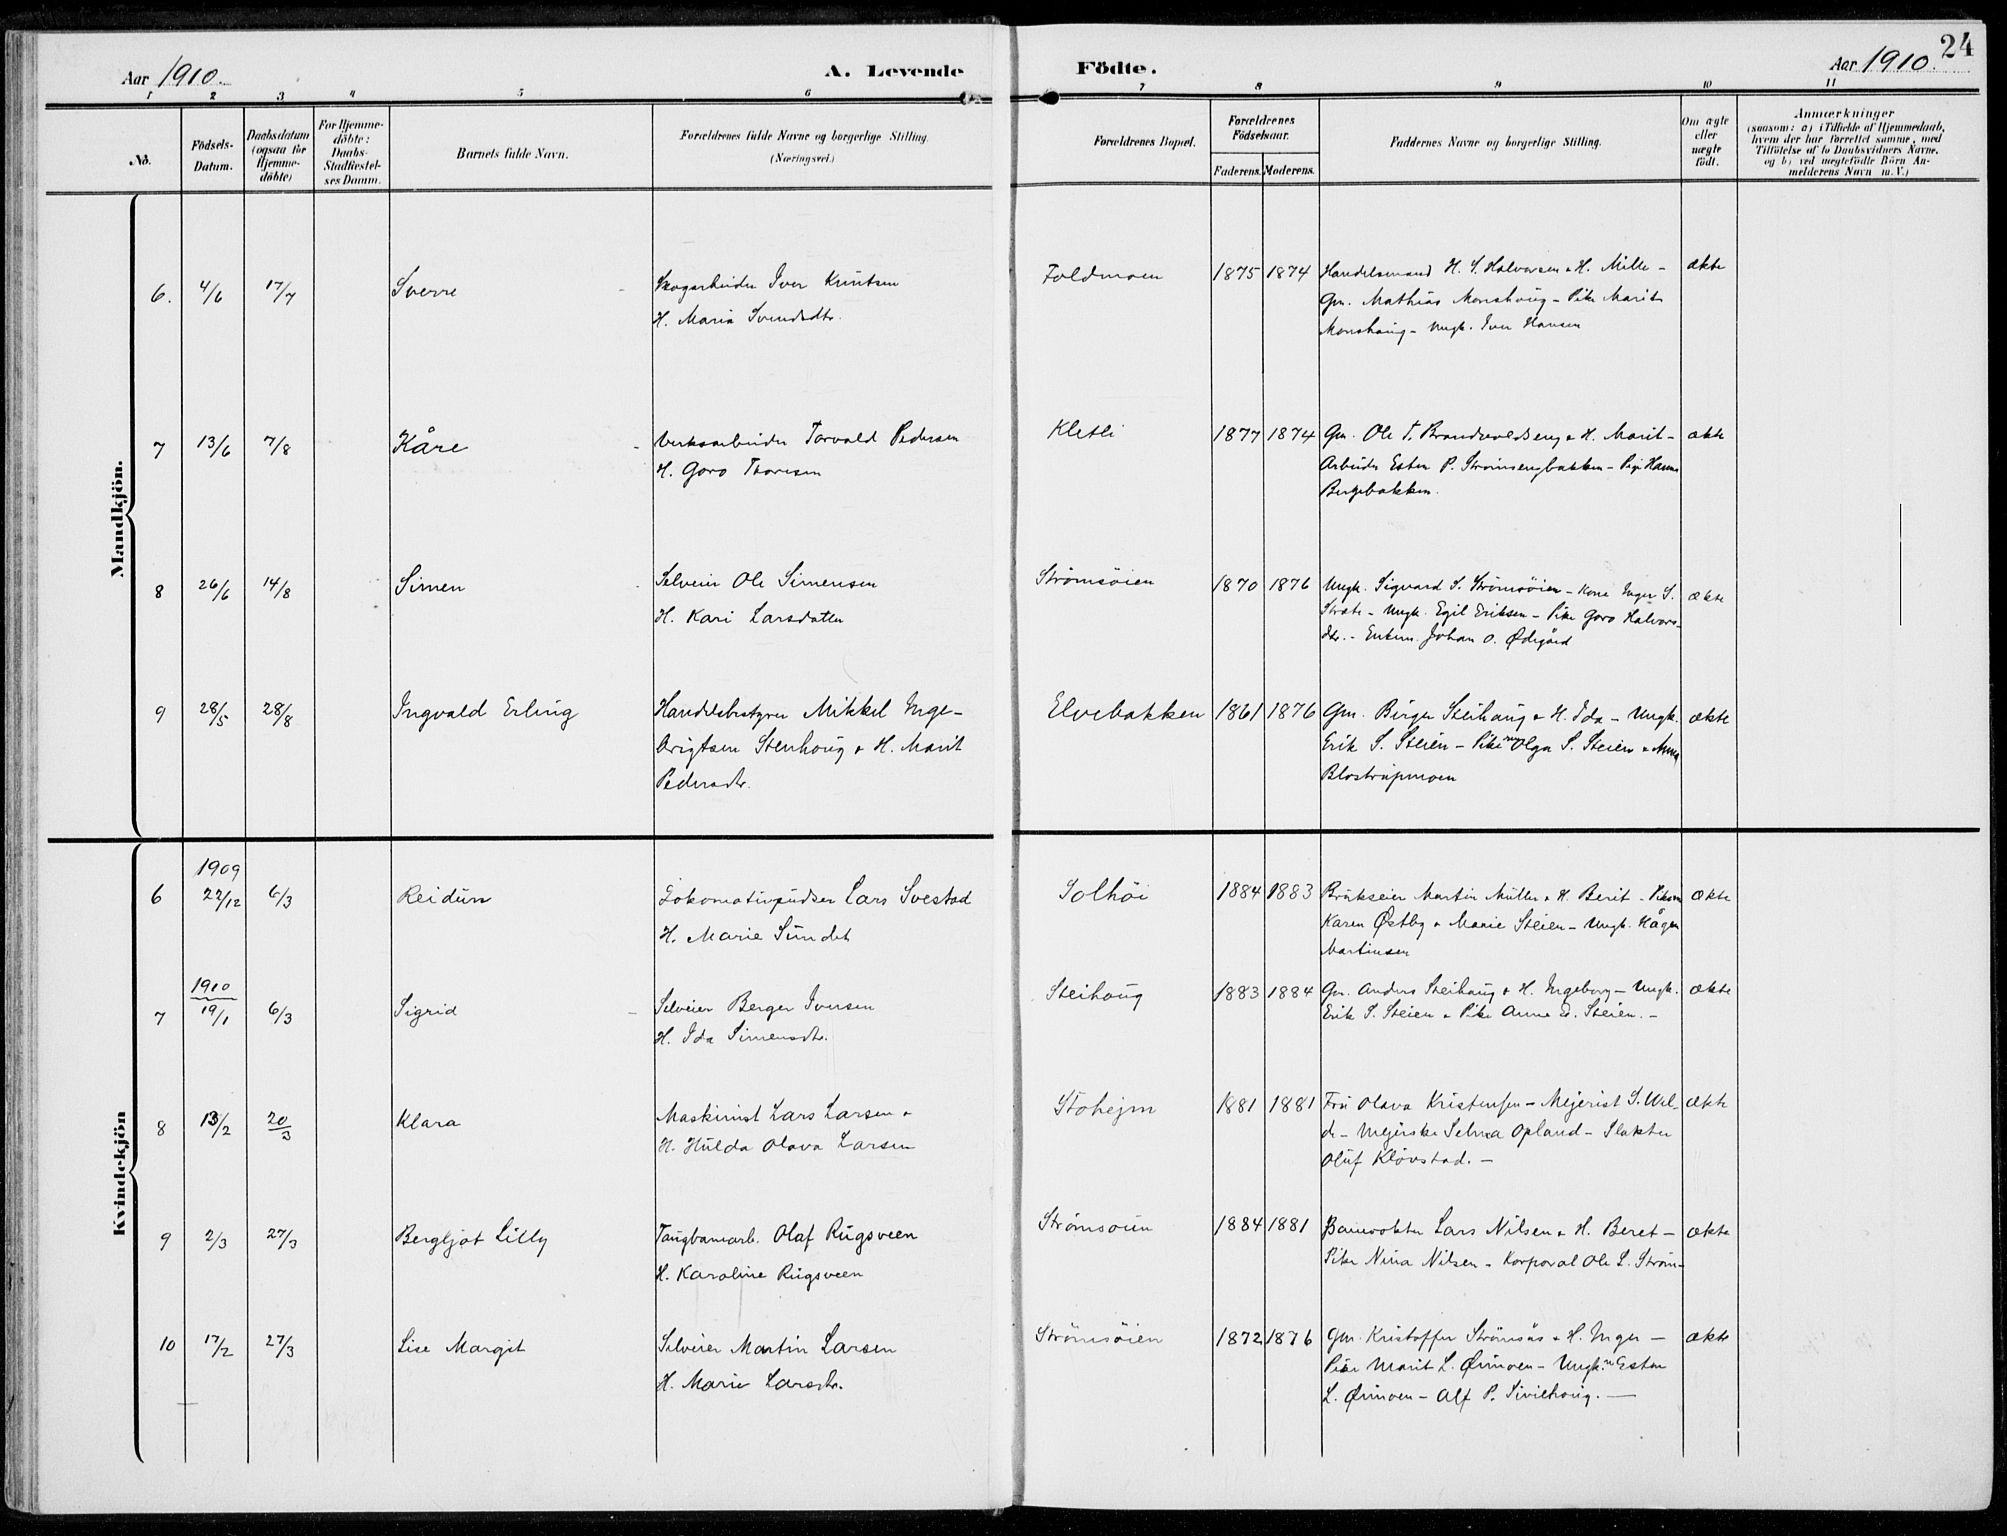 Aar 1910. A. Levende Födte. Aar 1910. 24
1 2 3 4 5 6 7 8 9 10 11
No. Födsels-Datum. Daabsdatum (ogsaa for Hjemme-döbte) For Hjemme-döbte: Daabs-Stadfæstel-ses Datum. Barnets fulde Navn. Forældrenes fulde Navne og borgerlige Stilling. (Næringsvei.) Forældrenes Bopæl. Forældrenes Födselsaar. Faderens. Moderens. Faddernes Navne og borgerlige Stilling. Om ægte eller uægte födt. Anmærkninger (saasom: a) i Tilfælde af Hjemmedaab, hvem der har forrettet samme, med Tilföielse af to Daabsvidners Navne, og b) ved uegtefödte Börn Anmelderens Navn m.V.)
Mandkjön.
6. 4/6 17/7 Sverre Skogarbeider Iver Knutsen Foldmoen 1875 1874 Handelsmand H. S. Halvorsen & H. Mille - ækte
H. Maria Svendsdtr. Gm. Mathias Monshaug - Pike Marit
Monshaug - Ungk. Iver Hansen
7 13/6 7/8 Kåre Verksarbeider Torvald Pedersen Kletli 1877 1874 Gm. Ole T. Brandvoldseng & H. Marit - ækte
H. Goro Thoresen Arbeider Esten P. Strömsengbakken - Pige Hanna
Bergebakken.
8 26/6 14/8 Simen Selveier Ole Simensen Strömsöien 1870 1876 Ungk. Sigvard S. Strömsöien - Kone Inger S. ækte
H. Kari Larsdatter - Ungk. Egil Eriksen - Pike Goro Halvors-
dtr. - Enkem. Johan O. Ødegård
9 28/5 28/8 Ingvald Erling Handelsbestyrer Mikkel Inge- Elvebakken 1861 1876 Gm. Birger Steihaug & H. Ida - Ungk. ækte
brigtsen Stenhaug & H. Marit Erik S. Steien - Pikerne Olga S. Steien & Anna
Pedersdtr. Blostrupmoen
Kvindekjön
1909
6 22/12 6/3 Reidun Lokomotivpudser Lars Svestad Solhöi 1884 1883 Brukseier Martin Müller & H. Berit - Pikerne ækte
H. Marie Sundet Karen Østby & Marie Steien - Ungk. Hågen
Martinsen
1910
7 19/1 6/3 Sigrid Selveier Berger Iversen Steihaug 1883 1884 Gm. Anders Steihaug & H. Ingeborg - Ungk. ækte
H. Ida Simensdtr. Erik S. Steien & Pike Anne E. Steien. -
8 13/2 20/3 Klara Maskinist Lars Larsen & Stohejm 1881 1881 Fru Olava Kristensen - Mejerist S. Wel- ækte
H. Hulda Olava Larsen de - Mejerske Selma Opland - Slakter
Oluf Klövstad. -
9 2/3 27/3 Bergljot Lilly Taugbanearb. Olaf Rugsveen Strömsöien 1884 1881 Banevokter Lars Nilsen & H. Beret - ækte
H. Karoline Rugsveen Pike Nina Nilsen - Korporal Ole L. Ström-
10 17/2 27/3 Lise Margit Selveier Martin Larsen Strömsöien 1872 1876 Gm. Kristoffer Strömsås & H. Inger - ækte
H. Marie Larsdtr. Pike Marit L. Örmoen - Ungk. Esten
L. Örmoen - Alf P. Sivilhaug. -